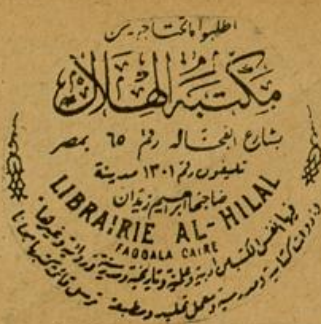 اطلبوا ما تحتاجون من
مكتبة الهلال
بشارع الفجاله رقم ٦٥ بمصر
تليفون رقم ١٣٠١ مدينة
صاحبها ابراهيم زيدان
LIBRAIRIE AL-HILAL
FAGGALA CAIRE
فيها انفس الكتب أدبية وعلمية وتاريخية ومدرسية وروائية وغيرها
وأدوات كتابية ومدرسية ومعمل تجليد ومطبعة ترسل قائمة كتبها مجانا